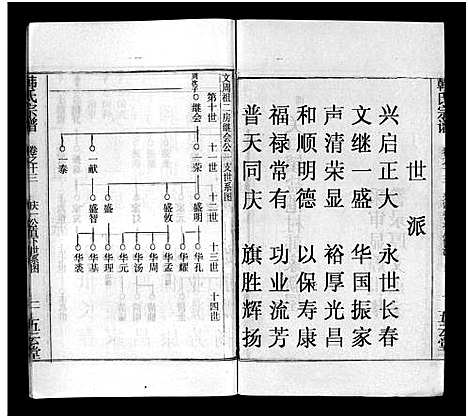 世派
兴启正大　永世长春
文继一盛　华国振家
声清荣显　裕厚光昌
和顺明德　以保寿康
福禄常有　功业流芳
普天同庆　旗胜辉扬
五云堂
文周祖二房继会公一支世系图
第十世　十一世　十二世　十三世　十四世
继会
一荣　一献　一泰
盛明　盛敦　盛智
华孔　华耀　华孟　华周　华汤　华元　华理　华基　华裘
韩氏宗谱　卷之十三
五云堂